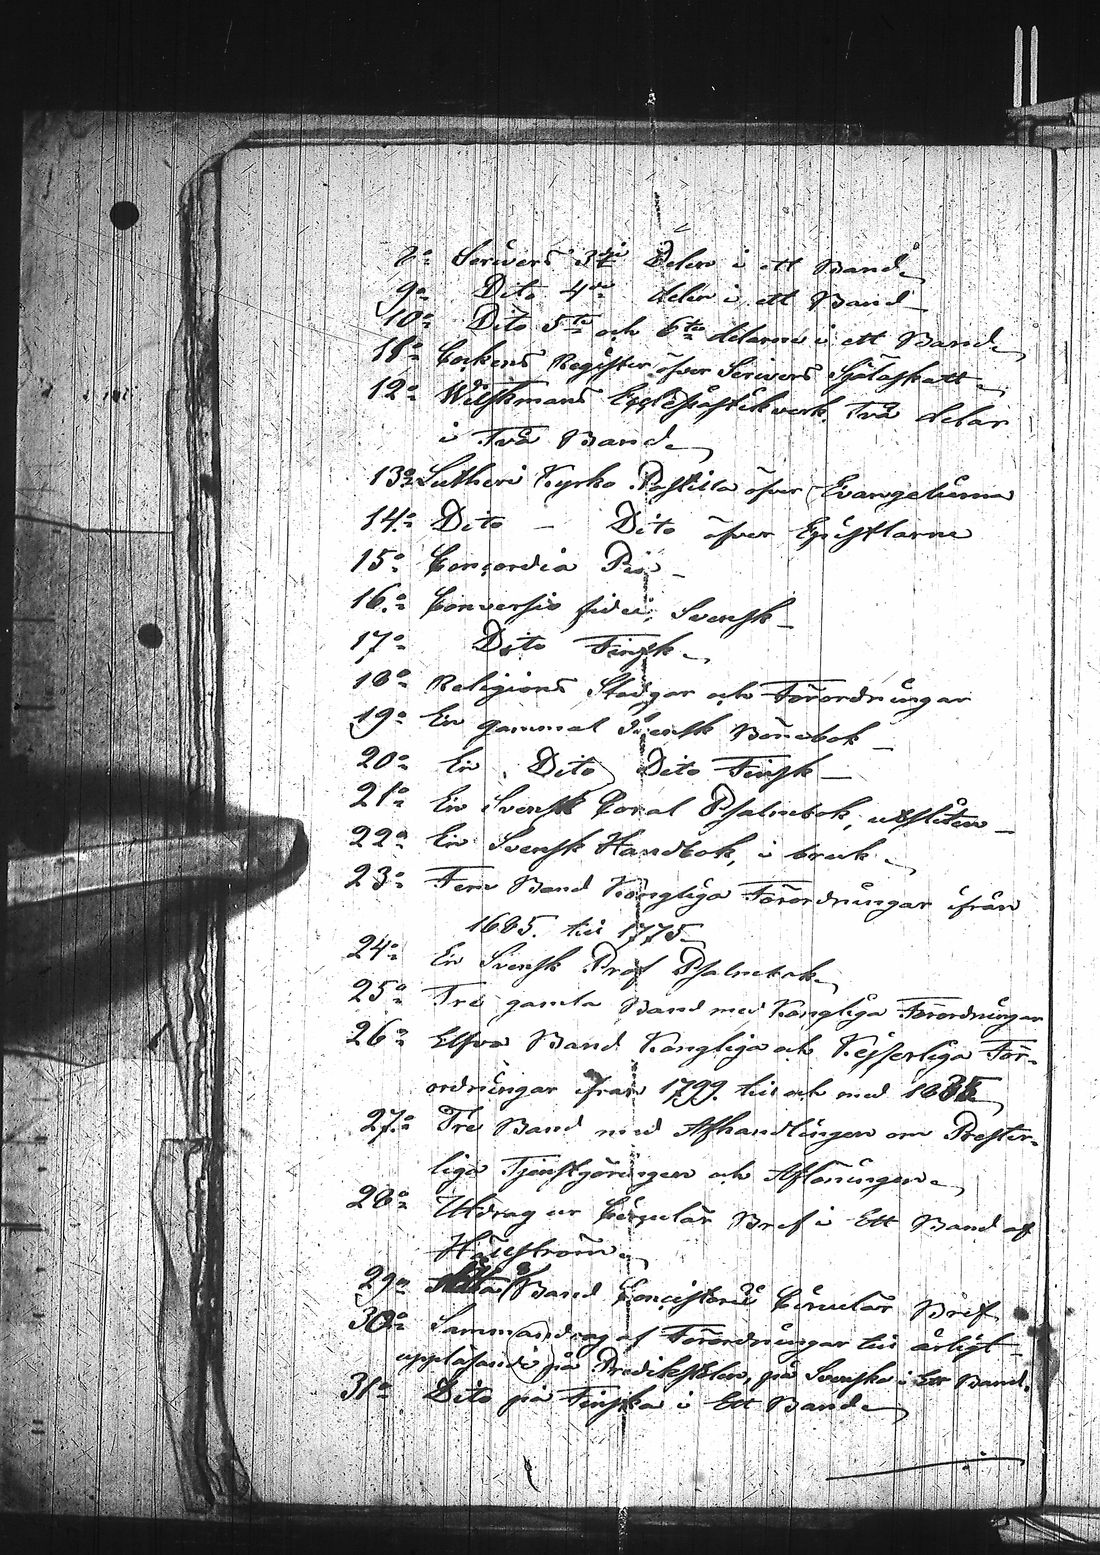 8:o Scrivers 3:die Delen i ett Band
9:o Dito 4:de delen i ett Band
10:o Dito 5:te och 6:te delarne i ett Band
11:o Register öfver Scrivers Själaskatt
12:o Wilskmans Ecclesiastikverk, Två delar
i Två Band
13:o Lutheri Kyrko Postilla öfver Evangelierna
14:o Dito – Dito öfver Epistlarne
15:o Concordia Pia –
16:o Conversio fidei, Svensk –
17:o Dito Finsk
18:o Religions Stadgar och Förordningar
19:o En gammal Svensk Bönebok –
20:o En Dito Dito Finsk –
21:o En Svensk Coral Psalmebok, utsliten –
22:o En Svensk Handbok, i bruk
23:o Fem Band Kongliga Förordningar ifrån
1665. till 1775
24:o En Svensk Prof Psalmebok
25:o Tre gamla Band med Kongliga Förordningar
26:o Elfva Band Kongliga och Kejserliga För-
ordningar ifrån 1799. till och med 1835
27:o Tre Band med Afhandlingen om Prester-
liga Tjenstgöringen och Aflöningen
28:o Utdrag ur Circulär Bref i Ett Band af
29:o Band Concistorii Circulär Bref
30:o Sammandrag af Förordningar till årligt
uppläsande på Predikstolen, på Svenska i Ett Band.
31:o Dito på Finska i Ett Band